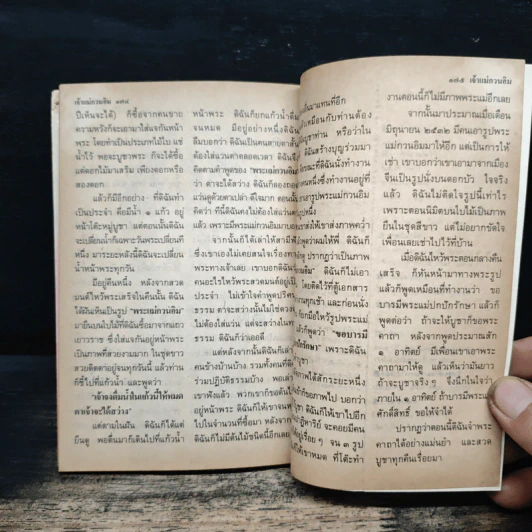 เจ้าแม่กวนอิม ๑๗๔
ปีเห็นจะได้) ก็ซื้อจากคนขาย
ความหวังก็จะเอามาใส่แจกันหน้า
พระ โดยทำเป็นประเภทไม้ใบ แช่
น้ำไว้ พอจะบูชาพระ ก็จะได้ซื้อ
แต่ดอกไม้มาเสริม เพียงดอกหรือ
สองดอก
แล้วก็มีอีกอย่าง ที่ดิฉันทำ
เป็นประจำ คือมีน้ำ ๑ แก้ว อยู่
หน้าโต๊ะหมู่บูชา แต่ตอนนั้นดิฉัน
จะเปลี่ยนน้ำก็เฉพาะวันพระเปลี่ยนที
หนึ่ง มาระยะหลังนี้ดิฉันจะเปลี่ยน
น้ำหน้าพระทุกวัน
มีอยู่คืนหนึ่ง หลังจากสวด
มนต์ไหว้พระเสร็จในคืนนั้น ดิฉัน
ได้ฝันเห็นเป็นรูป "พระแม่กวนอิม"
มายืนบนใบไม้ที่ดิฉันซื้อมาจากแถว
เยาวราช ซึ่งใส่แจกันอยู่หน้าพระ
เป็นภาพที่สวยงามมาก ในชุดขาว
สวยติดตาอยู่จนทุกวันนี้ แล้วท่าน
ก็ชี้ไปที่แก้วน้ำ และพูดว่า
"เจ้าจงดื่มน้ำในแก้วนี้ให้หมด
ตาเจ้าจะได้สว่าง"
แต่ตามในฝัน ดิฉันก็ได้แต่
ยืนดู พอตื่นมาก็เดินไปที่แก้วน้ำ
หน้าพระ ดิฉันก็ยกแก้วน้ำดื่ม
จนหมด มีอยู่อย่างหนึ่งดิฉัน
ลืมบอกว่า ดิฉันเป็นคนสายตาสั้น
ต้องใส่แว่นตาตลอดเวลา ดิฉันจึง
คิดตามคำพูดของ "พระแม่กวนอิม"
ว่าตาจะได้สว่าง ดิฉันก็ลองถอด
แว่นดูด้วยตาเปล่า ดีใจมาก ตอนนั้น
คิดว่า ที่นี้ดิฉันคงไม่ต้องใส่แว่นตา
แล้ว เพราะมีพระแม่กวนอิมมาบอก
จากนั้นก็ได้เล่าให้สามีฟัง
ซึ่งเขาเองไม่เคยสนใจเรื่องทาง
พระทางเจ้าเลย เขาบอกดิฉันว่า
คนอะไรไหว้พระสวดมนต์อยู่เป็น
ประจำ ไม่เข้าใจคำพูดปริศนา
ตาจะสว่างนั้นไม่ใช่ดวงตา
ไม่ต้องใส่แว่น แต่จะสว่างในทาง
ธรรม ดิฉันก็ว่าเออดี
แต่หลังจากนั้นดิฉันก็เล่า
คนข้างบ้านบ้าง รวมทั้งคนที่
ร่วมปฏิบัติธรรมบ้าง พอเล่า
เขาฟังแล้ว พวกเขาก็ขอต้น
อยู่หน้าพระ ดิฉันก็ให้เขาจนหมด
ไปในจำนวนที่ซื้อมา หลังจากนั้น
ดิฉันก็ไม่มีต้นไม้ชนิดนี้อีกเลย
๑๗๕ เจ้าแม่กวนอิม
มาแทนที่อีก
เหมือนกับท่านต้อง
บูชาท่าน หรือว่าใน
ดิฉันสร้างบุญร่วมมา
ขณะที่ดิฉันนั่งทำงาน
คนหนึ่งซึ่งทำงานอยู่ที่
เอารูปพระแม่กวนอิมมา
รูปหนึ่ง
ส่งให้เขาส่งภาพความ
ผมให้พี่ ดิฉันก็
ดู ปรากฏว่าเป็นภาพ
กวนอิม" ดิฉันก็ไม่เอา
โดยติดไว้ที่ตู้เอกสาร
งานทุกเช้า และก่อนนั่ง
ยกมือไหว้รูปพระแม่
แล้วก็พูดว่า "ขอบารมี
ปกปักรักษา" เพราะดิฉัน
ภาพได้สักระยะหนึ่ง
ขอภาพไป บอกว่า
ดิฉันก็ให้เขาไปอีก
ปาฏิหาริย์ จะคอยมีคน
เรื่อยๆ จน ๓ รูป
ให้เขาหมด ที่โต๊ะทำ
งานตอนนี้ก็ไม่มีภาพพระแม่อีกเลย
จากนั้นมาประมาณเมื่อเดือน
มิถุนายน ๒๕๓๒ มีคนเอารูปพระ
แม่กวนอิมมาให้อีก แต่เป็นการให้
เช่า เขาบอกว่าเขาเอามาจากเมือง
จีนเป็นรูปนั่งบนดอกบัว ใจจริง
แล้ว ดิฉันไม่ติดใจรูปนี้เท่าไร
เพราะตอนนิมิตบนใบไม้เป็นภาพ
ยืนในชุดสีขาว แต่ไม่อยากขัดใจ
เพื่อนเลยเช่าไปไว้ที่บ้าน
เมื่อดิฉันไหว้พระตอนกลางคืน
เสร็จ ก็หันหน้ามาทางพระรูป
แล้วก็พูดเหมือนที่ทำงานว่า ขอ
บารมีพระแม่ปกปักรักษา แล้วก็
พูดต่อว่า ถ้าจะให้บูชาก็ขอพระ
คาถา หลังจากพูดประมาณสัก
๑ อาทิตย์ มีเพื่อนเขาเอาพระ
คาถามาให้ดู แล้วเห็นว่ามันยาว
ถ้าจะบูชาจริงๆ จึงนึกในใจว่า
ภายใน ๑ อาทิตย์ ถ้าบารมีพระแม่
ศักดิ์สิทธิ์ ขอให้จำได้
ปรากฏว่าตอนนี้ดิฉันจำพระ
คาถาได้อย่างแม่นยำ และสวด
บูชาทุกคืนเรื่อยมา